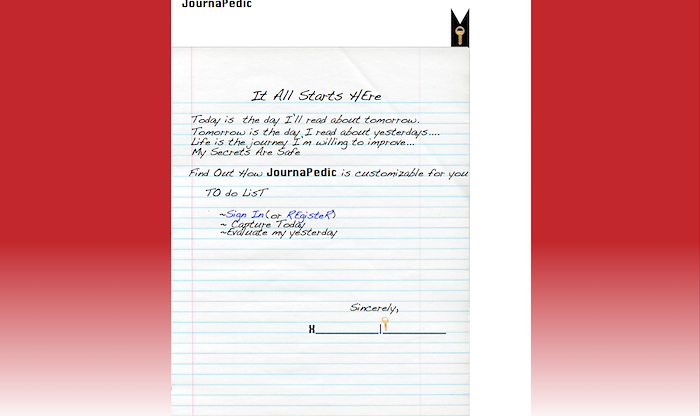 JournaPedic
It All Starts HEre
Today is the day I'll read about tomorrow.
Tomorrow is the day I read about yesterdays....
Life is the journey I'm willing to improve...
My Secrets Are Safe
Find Out How JournaPedic is customizable for you
TO do LisT
~Sign In(or REgisteR)
~ Capture Today
~Evaluate my yesterday
Sincerely,
X__________|__________